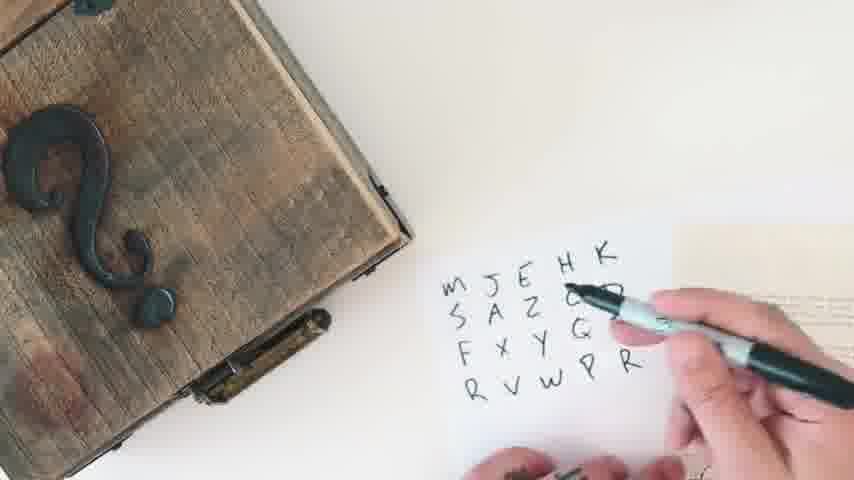 M J E H K
S A Z
F X Y G
R V W P R